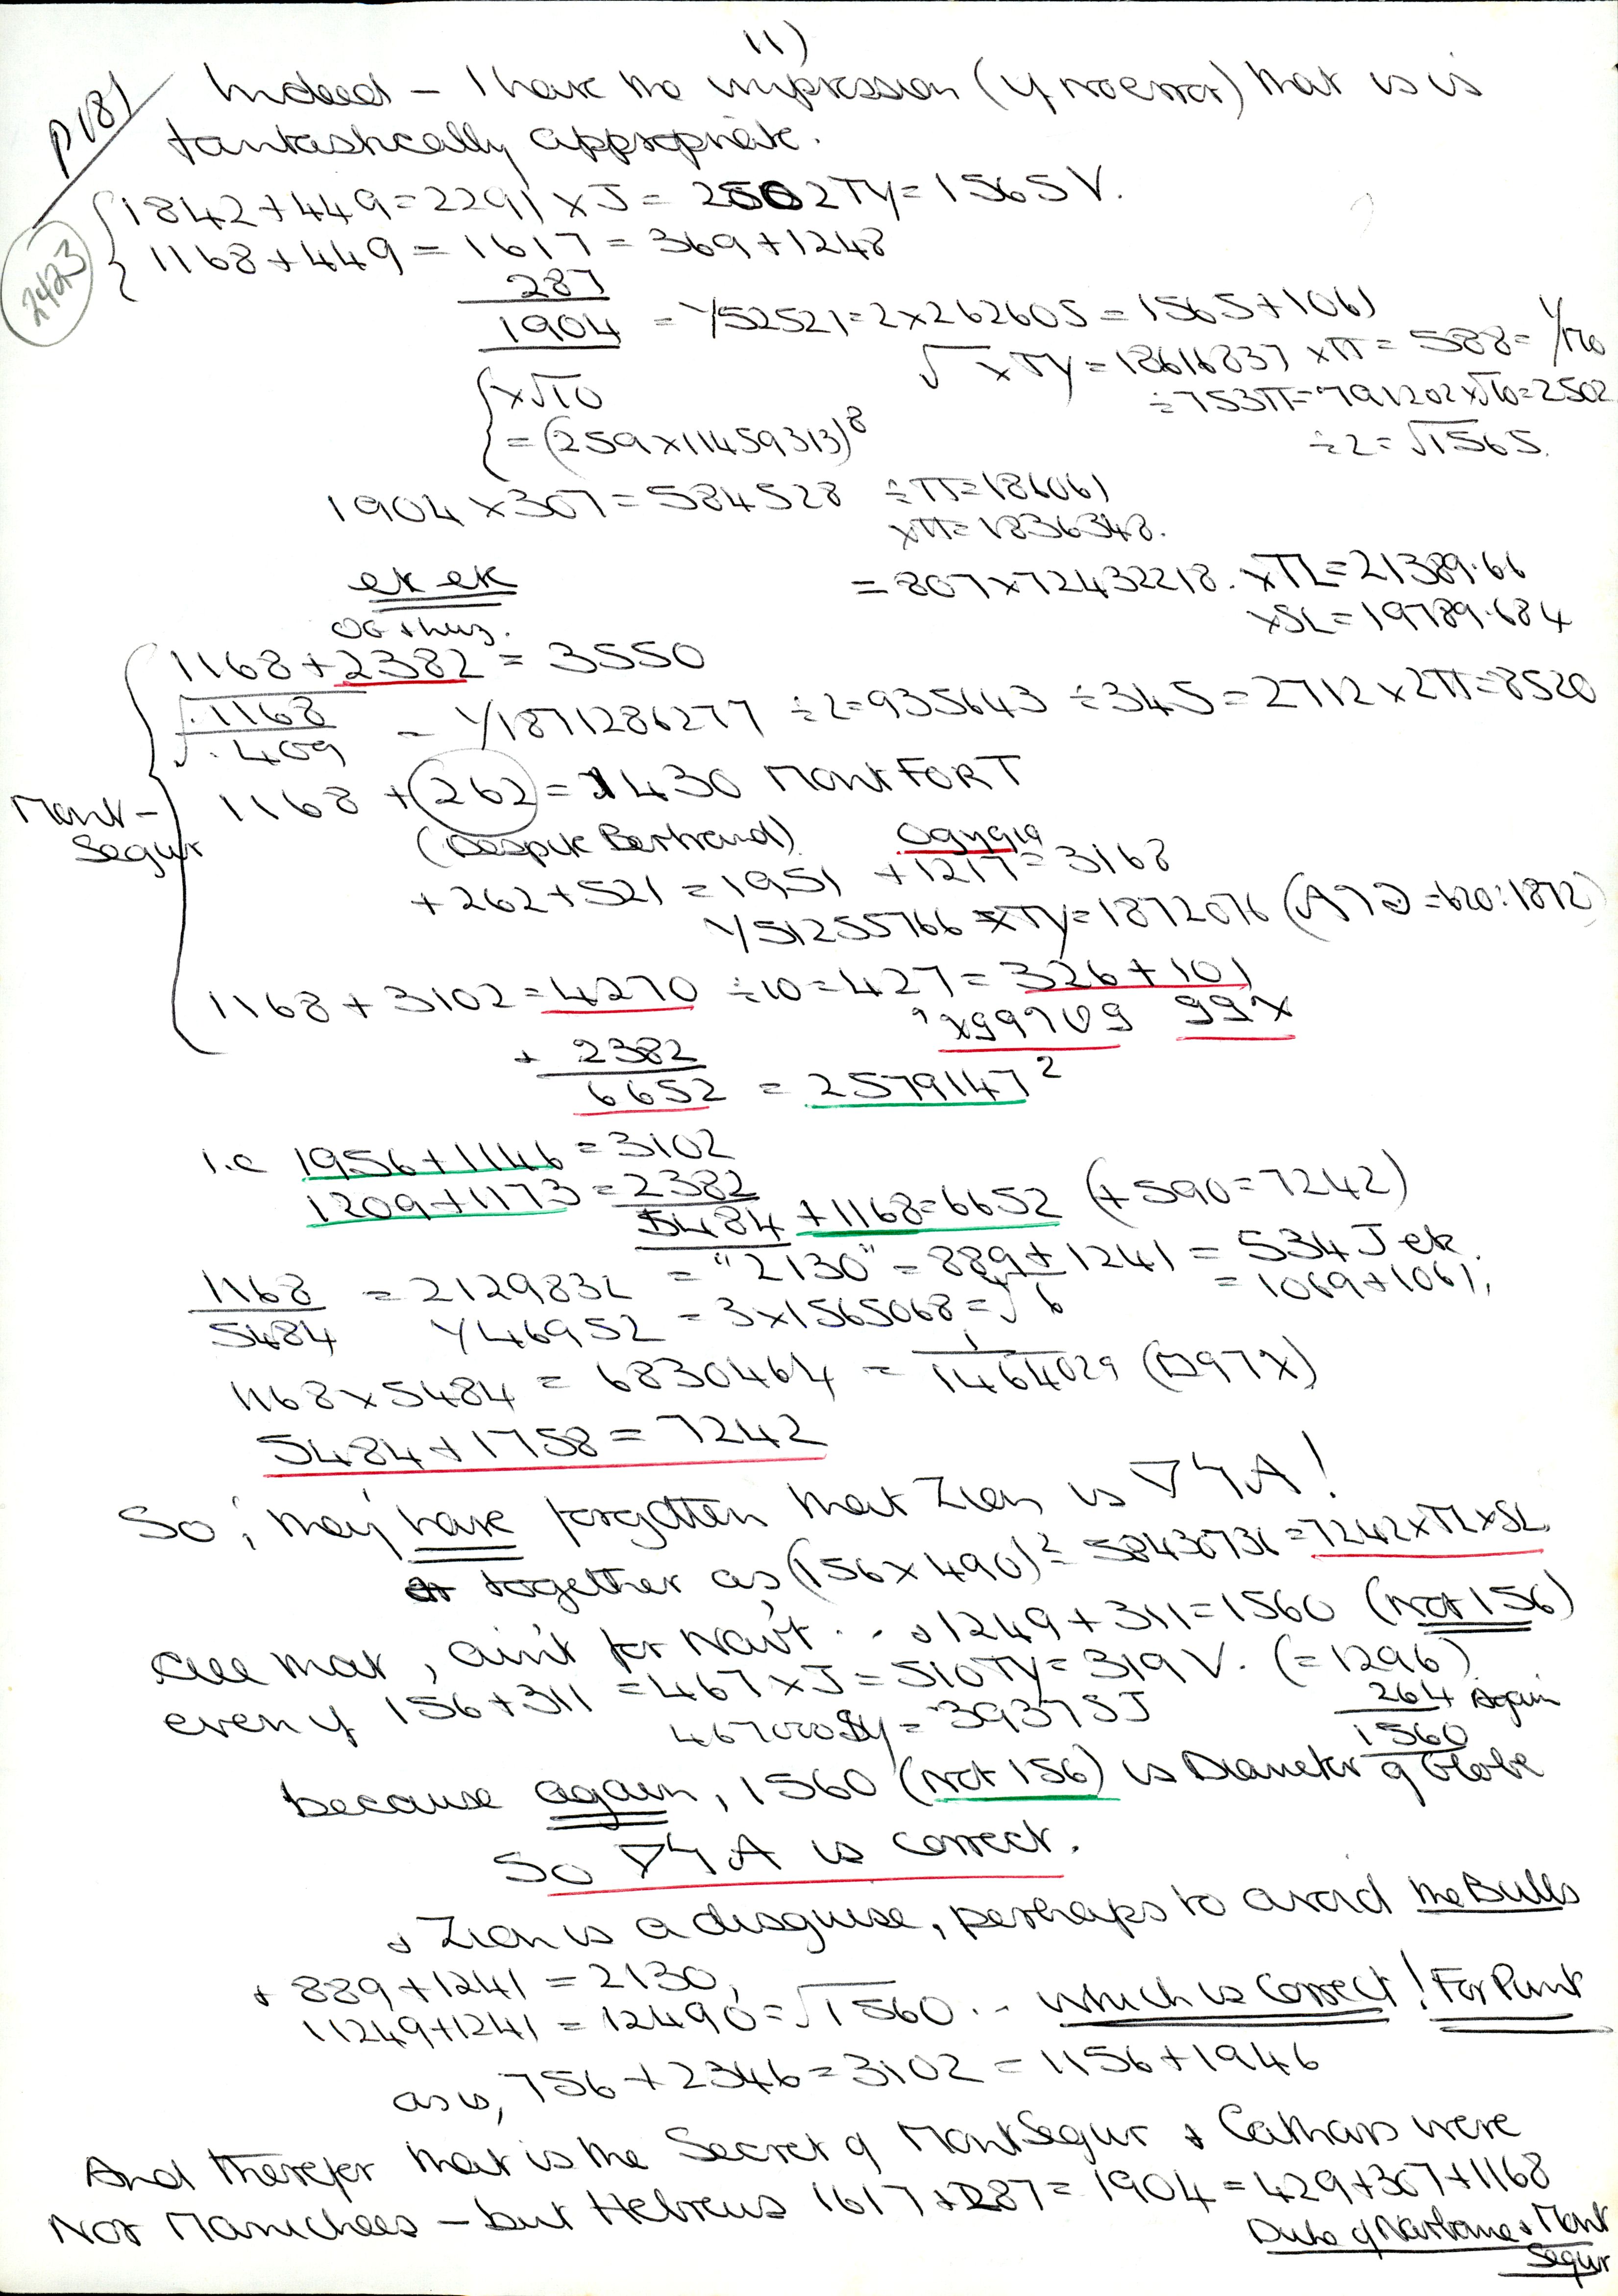 11)
P181
Indeed – I have the impression (if no error) that is is
fantastically appropriate.
2423
1842+449=2291 x J = 2502TY=1565V.
1168+449=1617=369+1248
287
1904 = 1/52521=2x262605=1565+1061
√ x TY=18616837 xπ=588=1/170
x√10
÷753π=791202x√10=2502
=(259x11459313)8
÷2=√1565.
1904x307=584528 ÷π=186061
xπ=1836348.
ek ek
=807x72432218. xTL=21389.66
xSL=19789.684
OG + huz.
1168+2382=3550
√.1168/.409 = 1/1871286277 ÷2=935643 ÷345=2712x2π=8520
Mont-
Segur
1168+(262)=1430 MontFORT
(Despite Bertrand)
Ogygia
+262+521=1951 +1217=3168
1/51255766 xTY=1872076 ( =620:1872)
1168+3102=4270 ÷10=427=326+101
+2382
6652 = 2579147²
i.e 1956+1146=3102
1209+1173=2382
5484+1168=6652 (+590=7242)
="2130"=889+1241=534J ek.
=1069+1061,
1168/5484 = 2129832
1/46952=3x1565068=√6
1168x5484=6830464=1/1464029
5484+1758=7242
So, 'may' have forgotten that Zion is ▽ЧA!
together as (156x490)²=58430736=7242xTLxSL
All that, ain't for Naut... + 1249+311=1560 (Not 156)
even if 156+311=467xJ=510TY=319V. (=1296)
264 Again
1560
467000SY=39375J
because again, 1560 (Not 156) is Diameter of Globe
So ▽ЧA is correct.
+ Zion is a disguise, perhaps to avoid the Bulls
+ 889+1241=2130,
11249+1241=12490=√1560... which is correct! For Punt
as is, 756+2346=3102=1156+1946
And therefor that is the Secret of MontSegur + Cathars were
Not Manichees – but Hebreus 1617+287=1904=429+307+1168
Duke of Narbonne + Mont
Segur